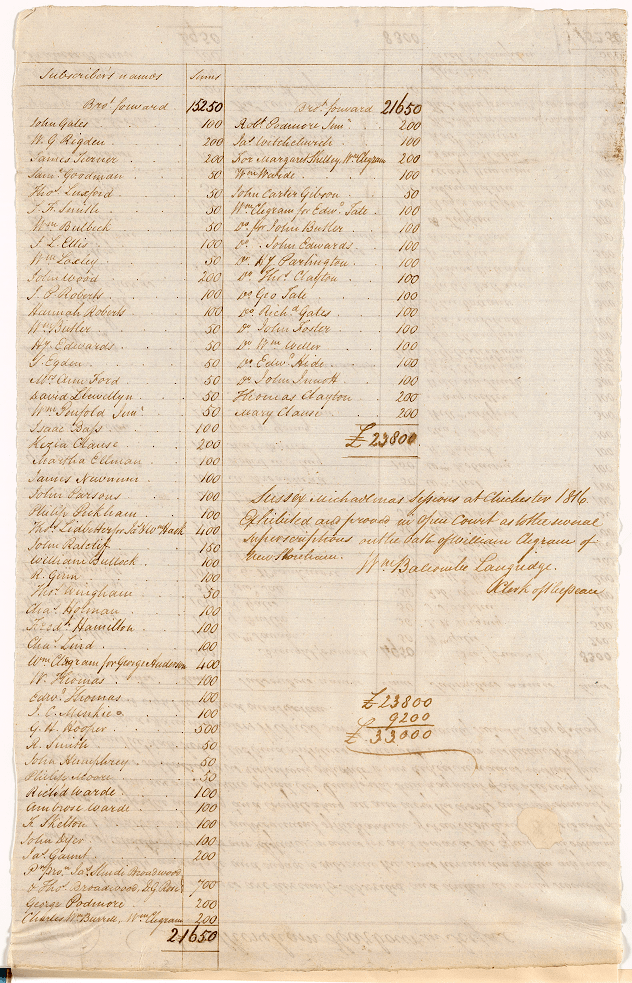 Subscriber's names Sums
Bro.t forward 15250
John Gates 100
W. G. Rigden 200
James Turner 200
Saml. Goodman 50
Thos. Luxford 50
T. F. Smith 50
Wm Bulbeck 50
J. L. Ellis 100
Wm Loxley 50
John Wood 200
J. P. Roberts 100
Hannah Roberts 100
Wm Butler 50
Hy. Edwards 50
Egden 50
Mrs Ann Ford 50
David Llewellyn 50
Wm Penfold Junr. 50
Isaac Bass 100
Kezia Clause 200
Martha Ellman 100
James Newnum 100
John Parsons 100
Philip Hickham 100
Thos. Lidbetter for Jas. & Wm Hack 400
John Ratclif 150
William Bullock 100
R. Grim 100
Thos. Wingham 50
Chas. Holman 100
Fredk. Hamilton 100
Chas. Lind 100
Wm Clegram for George Henderson 400
W. Thomas 100
Edwd. Thomas 100
J. C. Michie 100
G. H. Hooper 500
H. Smith 50
John Humphrey 50
Philip Moore 50
Richd Warde 100
Ambrose Warde 100
Skelton 100
John Dyer 100
Jas. Gaunt 200
Pr. Pro. Jas. Shudi Broadwood
& Thos. Broadwood 700
George Padmore 200
Charles Wm Burrell, Wm Clegram 200
21650
Bro.t forward 21650
Robt. Padmore Junr. 200
Jas. Witchchurch 100
For Margaret Shelley, Wm Clegram 200
Wm Warde 100
John Carter Gibson 50
Wm Clegram for Edwd. Tate 100
Do. for John Butler 100
Do. John Edwards 100
Do. Hy Partington 100
Do. Thos. Clayton 100
Do. Geo Tate 100
Do. Richd. Gates 100
Do. John Foster 100
Do. Wm Weller 100
Do. Edwd. Hide 100
Do. John 100
Thomas Clayton 200
Mary Clause 200
£ 23800
Sussex Michaelmas Sessions at Chichester 1816
Exhibited and proved in Open Court as to the several
Superscriptions on the Oath of William Clegram of
New Shoreham.
Wm Balcombe Langridge.
Clerk of the Peace
£23800
9200
£ 33000